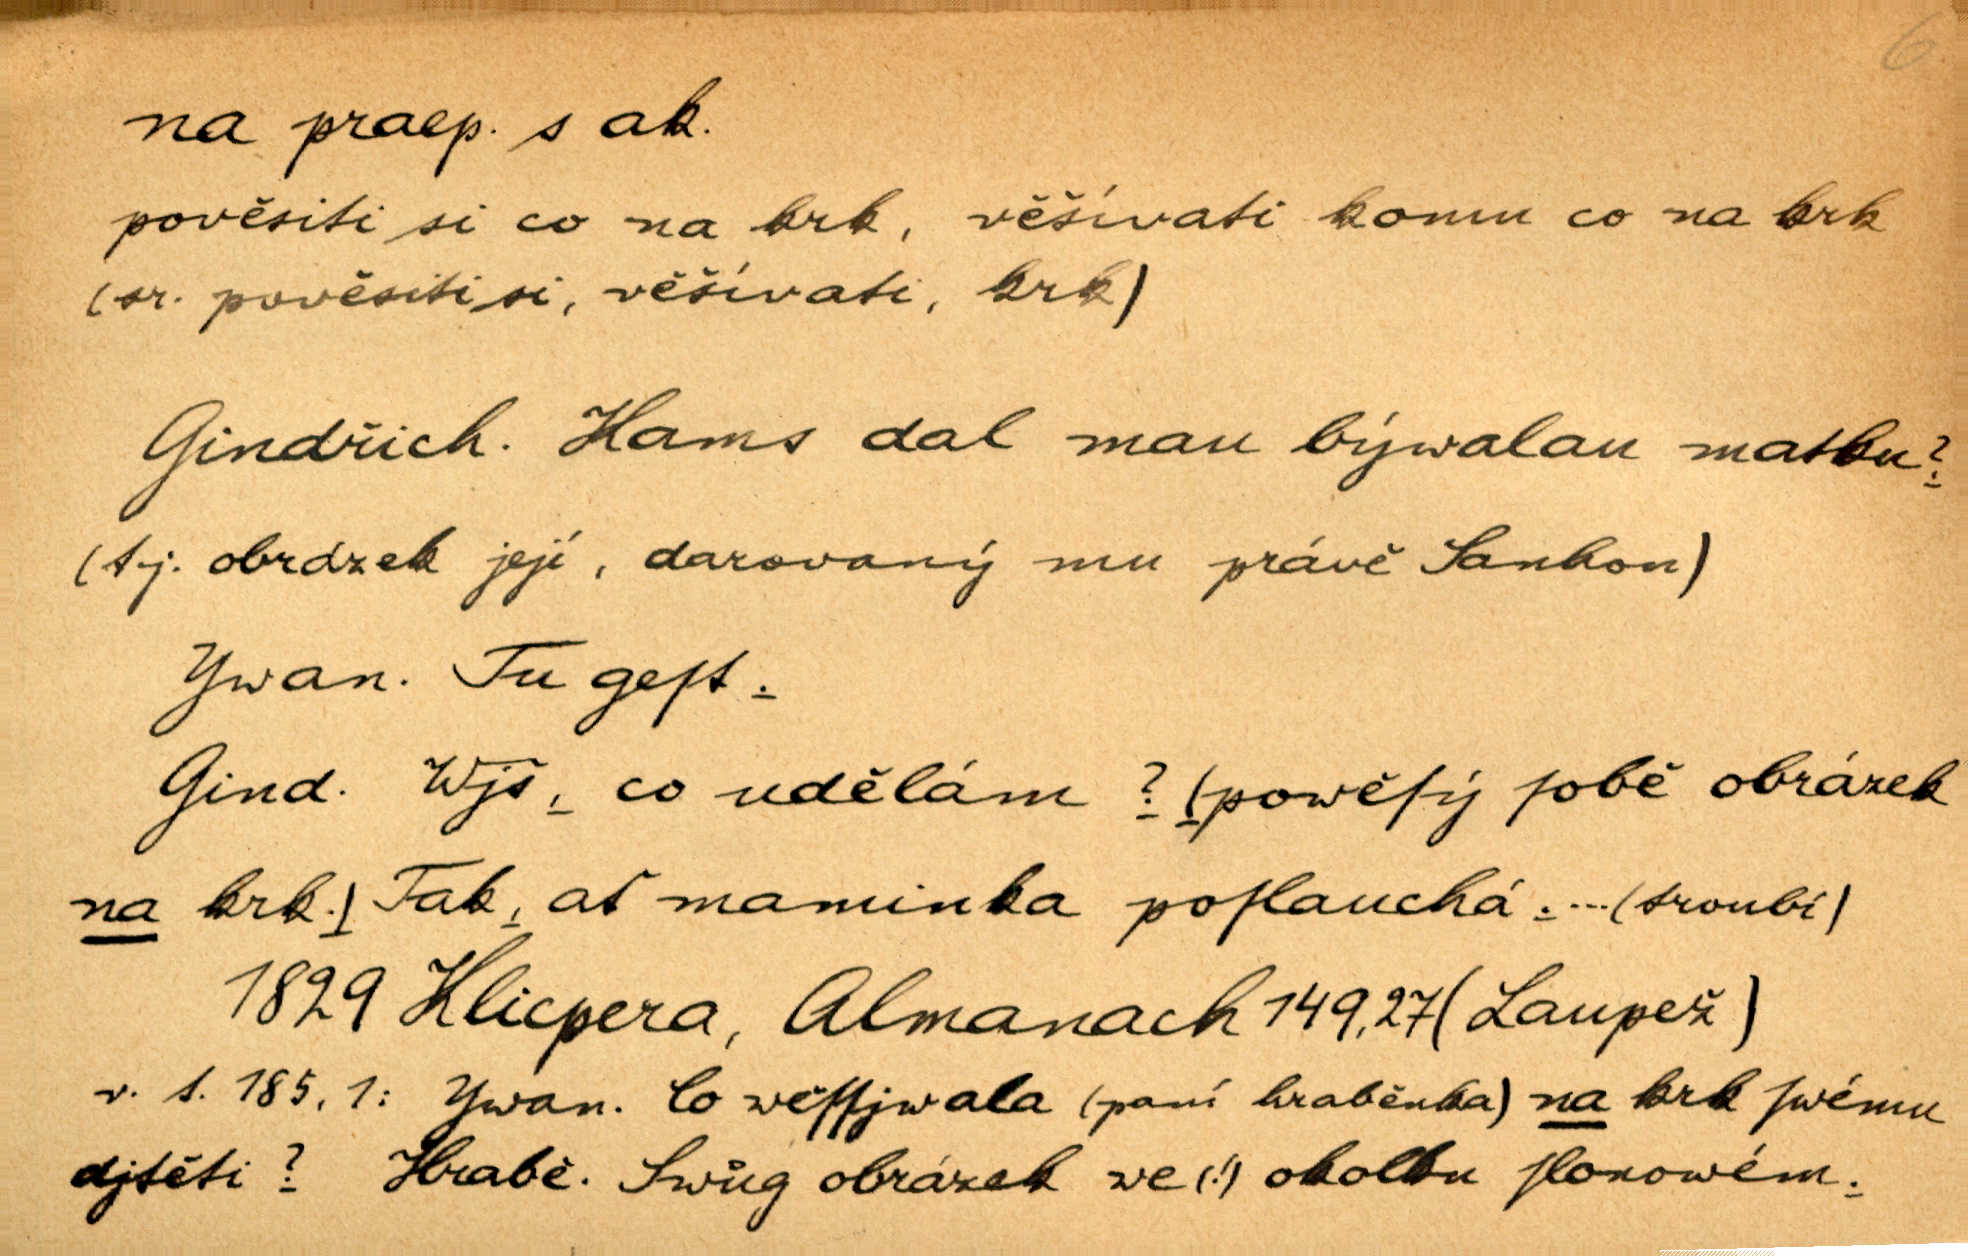 6
na praep. s ak.
pověsiti si co na krk, věšívati komu co na krk
(sr. pověsiti si, věšívati, krk)
Gindřich. Kams dal mau býwalau matku?
(t.j. obrázek její, darovaný mu právě Sankou)
Ywan. Tu geſt.
Gind. Wjš, co udělám? (powěſý ſobě obrázek
na krk.) Tak, ať maminka poſlauchá. ...(troubí)
1829 Klicpera, Almanach 149,27 (Laupež)
v. t. 185, 1: Ywan. Co wěſſjwala (paní hraběnka) na krk ſwému
djtěti? Hrabě. Swůg obrázek we (!) okolku ſlonowém.